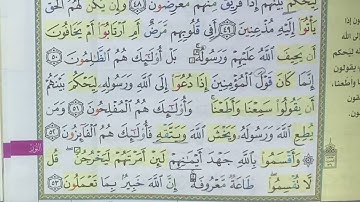 لِيَحْكُمَ بَيْنَهُمْ إِذَا فَرِيقٌ مِّنْهُم مُّعْرِضُونَ ٤٨ وَإِن يَكُن لَّهُمُ الْحَقُّ
يَأْتُوا إِلَيْهِ مُذْعِنِينَ ٤٩ أَفِي قُلُوبِهِم مَّرَضٌ أَمِ ارْتَابُوا أَمْ يَخَافُونَ
أَن يَحِيفَ اللَّهُ عَلَيْهِمْ وَرَسُولُهُ بَلْ أُولَٰئِكَ هُمُ الظَّالِمُونَ ٥٠
إِنَّمَا كَانَ قَوْلَ الْمُؤْمِنِينَ إِذَا دُعُوا إِلَى اللَّهِ وَرَسُولِهِ لِيَحْكُمَ بَيْنَهُمْ
أَن يَقُولُوا سَمِعْنَا وَأَطَعْنَا وَأُولَٰئِكَ هُمُ الْمُفْلِحُونَ ٥١ وَمَن
يُطِعِ اللَّهَ وَرَسُولَهُ وَيَخْشَ اللَّهَ وَيَتَّقْهِ فَأُولَٰئِكَ هُمُ الْفَائِزُونَ ٥٢
وَأَقْسَمُوا بِاللَّهِ جَهْدَ أَيْمَانِهِمْ لَئِنْ أَمَرْتَهُمْ لَيَخْرُجُنَّ قُل
لَّا تُقْسِمُوا طَاعَةٌ مَّعْرُوفَةٌ إِنَّ اللَّهَ خَبِيرٌ بِمَا تَعْمَلُونَ ٥٣